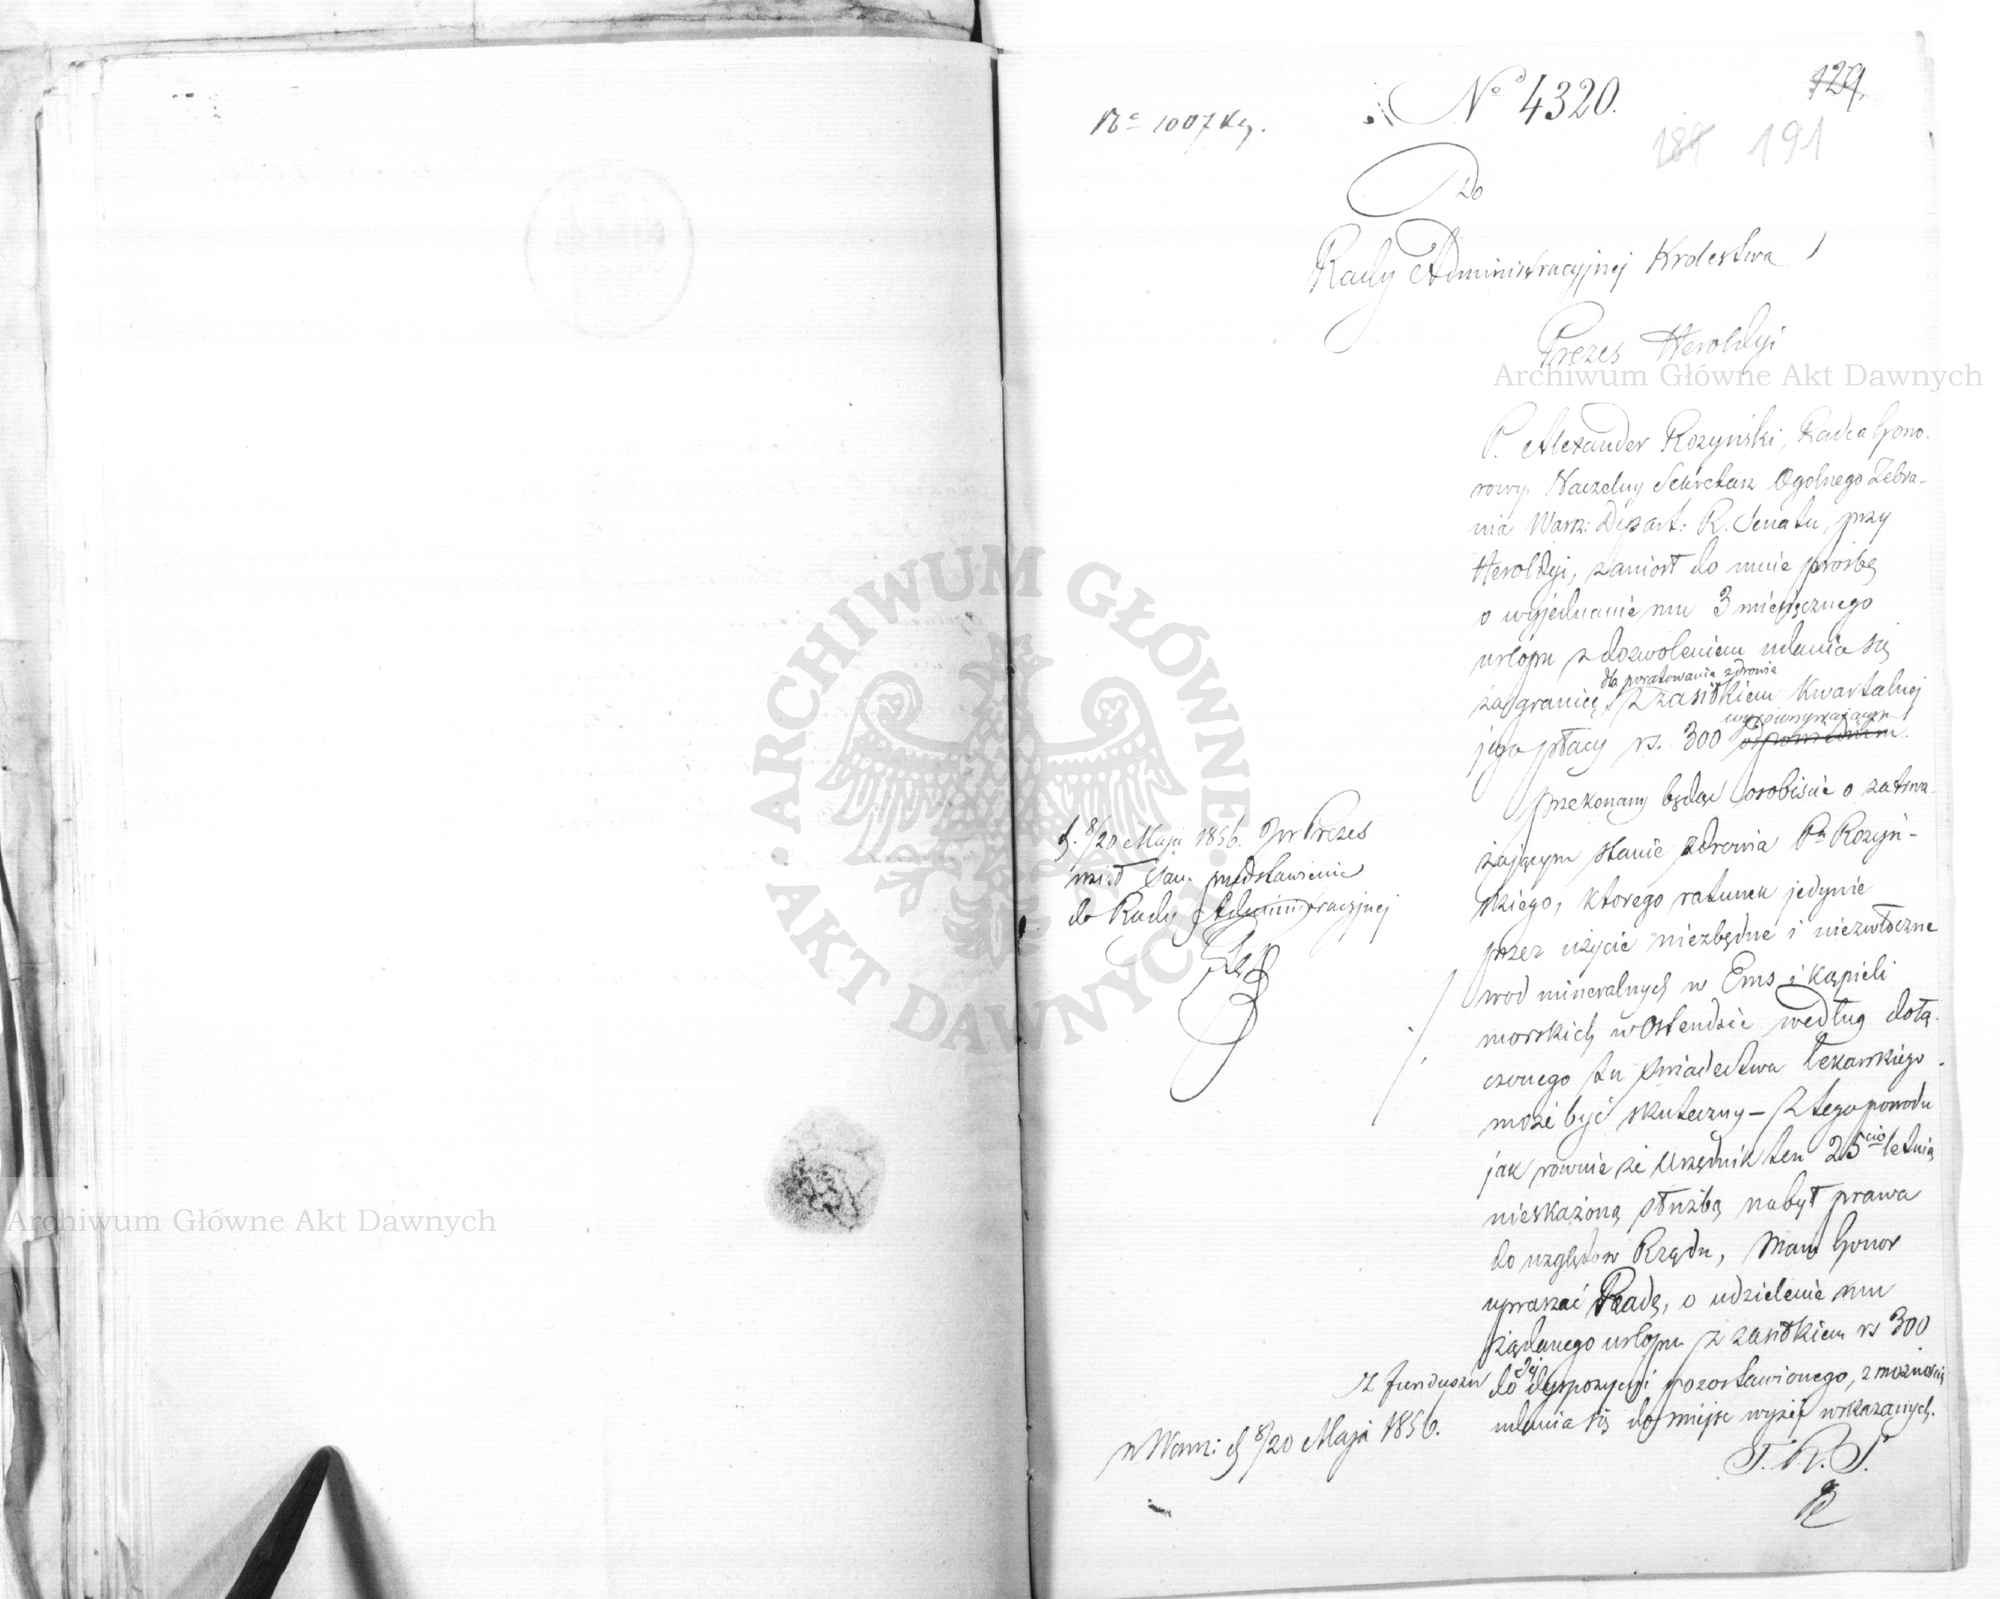 129
No 1007 Kg.
No 4320.
189 191
Do
Rady Administracyjnej Krolestwa
Prezes Heroldyi
P. Alexander Rozyński, Radca Hono-
rowy, Naczelny Sekretarz Ogolnego Zebra-
nia Warsz: Depart: R. Senatu, przy
Heroldyi, zaniosł do mnie prośbę
o wyjednanie mu 3 miesięcznego
urlopu z dozwoleniem udania się
dla poratowania zdrowia
zagranicę, z zasiłkiem kwartalnej
wyrownywającym
jego płacy rs. 300 odpowiednim.
przekonany będąc osobiście o zatrwa-
żającym stanie zdrowia Pa Rozyń-
skiego, ktorego ratunek jedynie
przez użycie niezbędne i niezwłoczne
wod mineralnych w Ems i kąpieli
morskich w Ostendzie według dołą-
czonego tu świadectwa Lekarskiego
może być skuteczny – z tego powodu
jak rownie że Urzędnik ten 25cio letnią
nieskażoną służbą nabył prawa
do względow Rządu, mam honor
upraszać Radę, o udzielenie mu
żądanego urlopu z zasiłkiem rs 300
z funduszu do Jej dyspozycyi pozostawionego, z możnością
udania się do miejsc wyżej wskazanych.
w Warsz: d 8/20 Maja 1856.
T. R. S.
d. 8/20 Maja 1856. Jw Prezes
miał sam przedstawienie
do Rady Administracyjnej
Archiwum Główne Akt Dawnych
ARCHIWUM GŁÓWNE · AKT DAWNYCH ·
Archiwum Główne Akt Dawnych